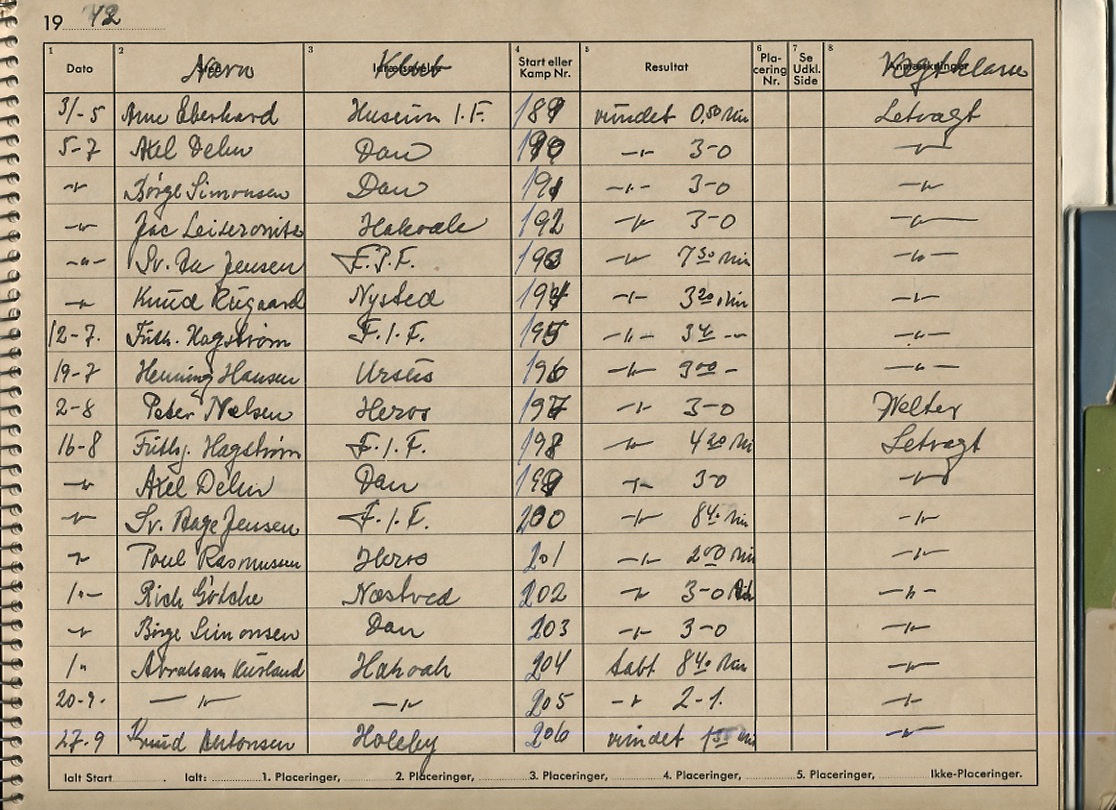 19 42
1 2 3 4 5 6 7 8
Dato Navn Klub Start eller Kamp Nr. Resultat Pla-cering Nr. Se Udkl. Side Vægtklasse
31-5 Arne Eberhard Huseum I.F. 189 vundet 0,50 Min Letvægt
5-7 Axel Dehn Dan 190 -"- 3-0 -"-
-"- Børge Simonsen Dan 191 -"- 3-0 -"-
-"- Jac Leiserowitz Hakoah 192 -"- 3-0 -"-
-"- Sv. Aa Jensen F.I.F. 193 -"- 7 30 Min -"-
-"- Knud Rugaard Nysted 194 -"- 3 20 Min -"-
12-7. Frith. Hagstrøm F.I.F. 195 -"- -"-
19-7 Henning Hansen Ursus 196 -"- 9 00 - -"-
2-8 Peter Nielsen Heros 197 -"- 3-0 Welter
16-8 Frithj. Hagstrøm F.I.F. 198 -"- 4 20 Min Letvægt
-"- Axel Dehn Dan 199 -"- 3-0 -"-
-"- Sv. Aage Jensen F.I.F. 200 -"- 8 40 Min -"-
-"- Poul Rasmussen Heros 201 -"- 2 00 Min -"-
-"- Rich Götche Næstved 202 -"- 3-0 -"-
-"- Børge Simonsen Dan 203 -"- 3-0 -"-
-"- Abraham Kurland Hakoah 204 tabt 8 40 Min -"-
20-9. -"- -"- 205 -"- 2-1. -"-
27-9 Knud Antonsen Holeby 206 vundet Min -"-
Ialt Start Ialt: 1. Placeringer, 2. Placeringer, 3. Placeringer, 4. Placeringer, 5. Placeringer, Ikke-Placeringer.